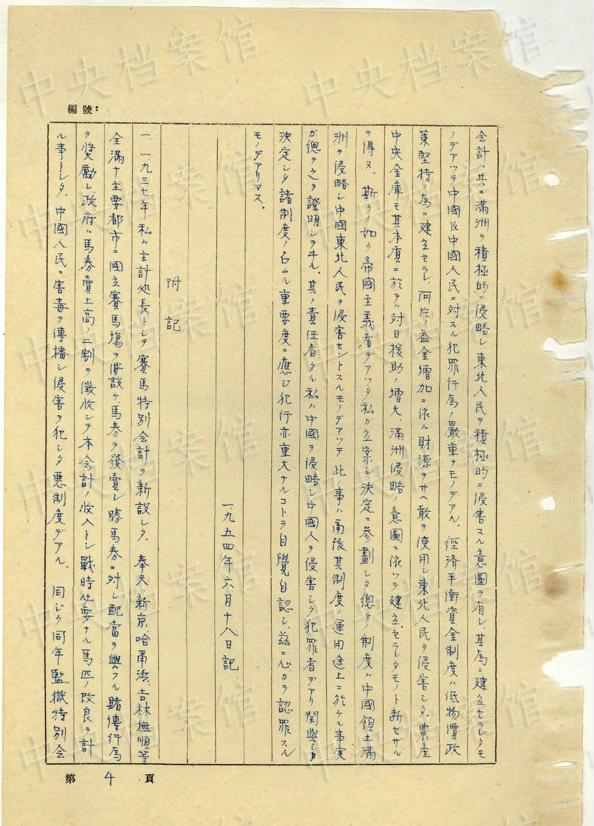 編號：
会計ハ共ニ滿洲ヲ積極的ニ侵略シ東北人民ヲ積極的ニ侵害スル意圖ヲ有シ其為ニ建立セラレタモ
ノデアツテ中國及中國人民ニ対スル犯罪行為ノ嚴重ナモノデアル、經済平衡資金制度ハ低物價政
策堅持ノ為ニ建立セラレ阿片ノ益金增加ニ依ル財源ヲサヘ敢ヲ使用シ東北人民ヲ侵害シタ、農産
中央金庫モ其本質ニ於テハ対日援助ノ增大、滿洲侵略ノ意圖ニ依ツテ建立セラレタモノト断ゼザル
ヲ得ヌ、斯ノ如ク帝國主義者デアツタ私ガ立案シ決定ニ参劃シタ總テノ制度ハ中國領土滿
洲ヲ侵略シ中國東北人民ヲ侵害セントスルモノデアツテ此ノ事ハ爾後其制度ノ運用途上ニ於ケル事実
ガ總テ之ヲ證明シテヰル、其ノ責任者タル私ハ中國ヲ侵略シ中國人ヲ侵害シタ犯罪者デアリ関與シタ
決定シタ諸制度ノ占ムル重要度ニ應ジ犯行亦重大ナルコトヲ自覺自認シ、茲ニ心カラ認罪スル
モノデアリマス、
一九五四年六月十八日記
附記
一、一九三七年私ハ主計処長トシテ賽馬特別会計ヲ新設シタ、奉天、新京、哈爾浜、吉林、撫順等
全滿ノ主要都市ニ國立賽馬場ヲ併設ケ馬券ヲ發賣シ勝馬券ニ対シ配當ヲ與フル賭博行為
ヲ奨勵シ政府ハ馬券賣上高ノ二割ヲ徴收シテ本会計ノ收入トシ戰時必要ナル馬匹ノ改良ヲ計
ル事トシタ、中國人民ニ害毒ヲ傳播シ侵害ヲ犯シタ悪制度デアル、同ジク同年監獄特別会
第4頁
中央档案馆